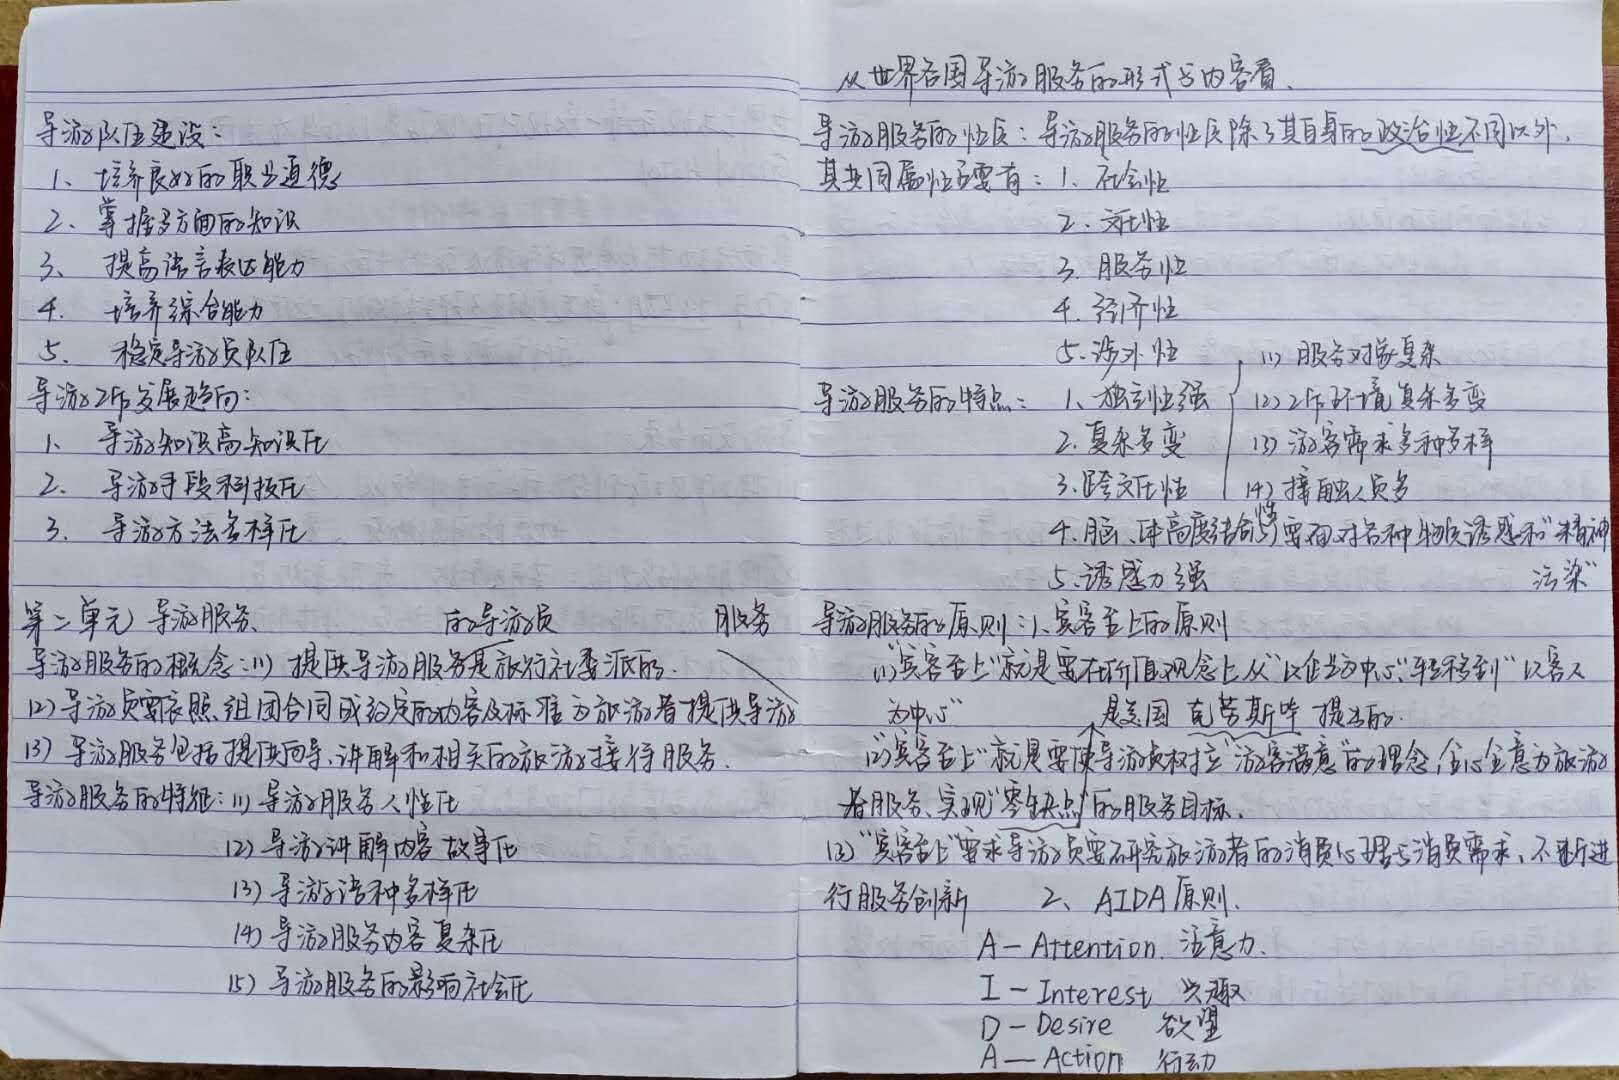 导游队伍建设：
1、培养良好的职业道德
2、掌握多方面的知识
3、提高语言表达能力
4、培养综合能力
5、稳定导游员队伍
导游工作发展趋向：
1、导游知识高知识化
2、导游手段科技化
3、导游方法多样化
第二单元 导游服务
导游服务的概念：(1) 提供导游服务是旅行社委派的 的导游员
(2) 导游员要依照组团合同或约定的内容及标准为旅游者提供导游 服务
(3) 导游服务包括提供向导、讲解和相关的旅游接待服务.
导游服务的特征：(1) 导游服务人性化
(2) 导游讲解内容故事化
(3) 导游语种多样化
(4) 导游服务内容复杂化
(5) 导游服务的影响社会化
从世界各国导游服务的形式与内容看.
导游服务的性质：导游服务的性质除了其自身的政治性不同以外.
其共同属性主要有：1. 社会性
2. 文化性
3. 服务性
4. 经济性
5. 涉外性
导游服务的特点： 1、独立性强
2. 复杂多变
(1) 服务对象复杂
(2) 工作环境复杂多变
(3) 游客需求多种多样
(4) 接触人员多
(5) 要面对各种物质诱惑和"精神污染"
3. 跨文化性
4. 脑、体高度结合性
5. 诱惑力强
导游服务的原则：1、宾客至上的原则
(1)"宾客至上"就是要在价值观念上从"以企业为中心"转移到"以客人
为中心"
(2)"宾客至上"就是要使导游员树立"游客满意"的理念,全心全意为旅游
者服务、实现"零缺点"的服务目标.
是美国 克劳斯毕 提出的.
(3)"宾客至上"要求导游员要研究旅游者的消费心理与消费需求、不断进
行服务创新
2、AIDA原则.
A — Attention 注意力.
I — Interest 兴趣
D — Desire 欲望
A — Action 行动